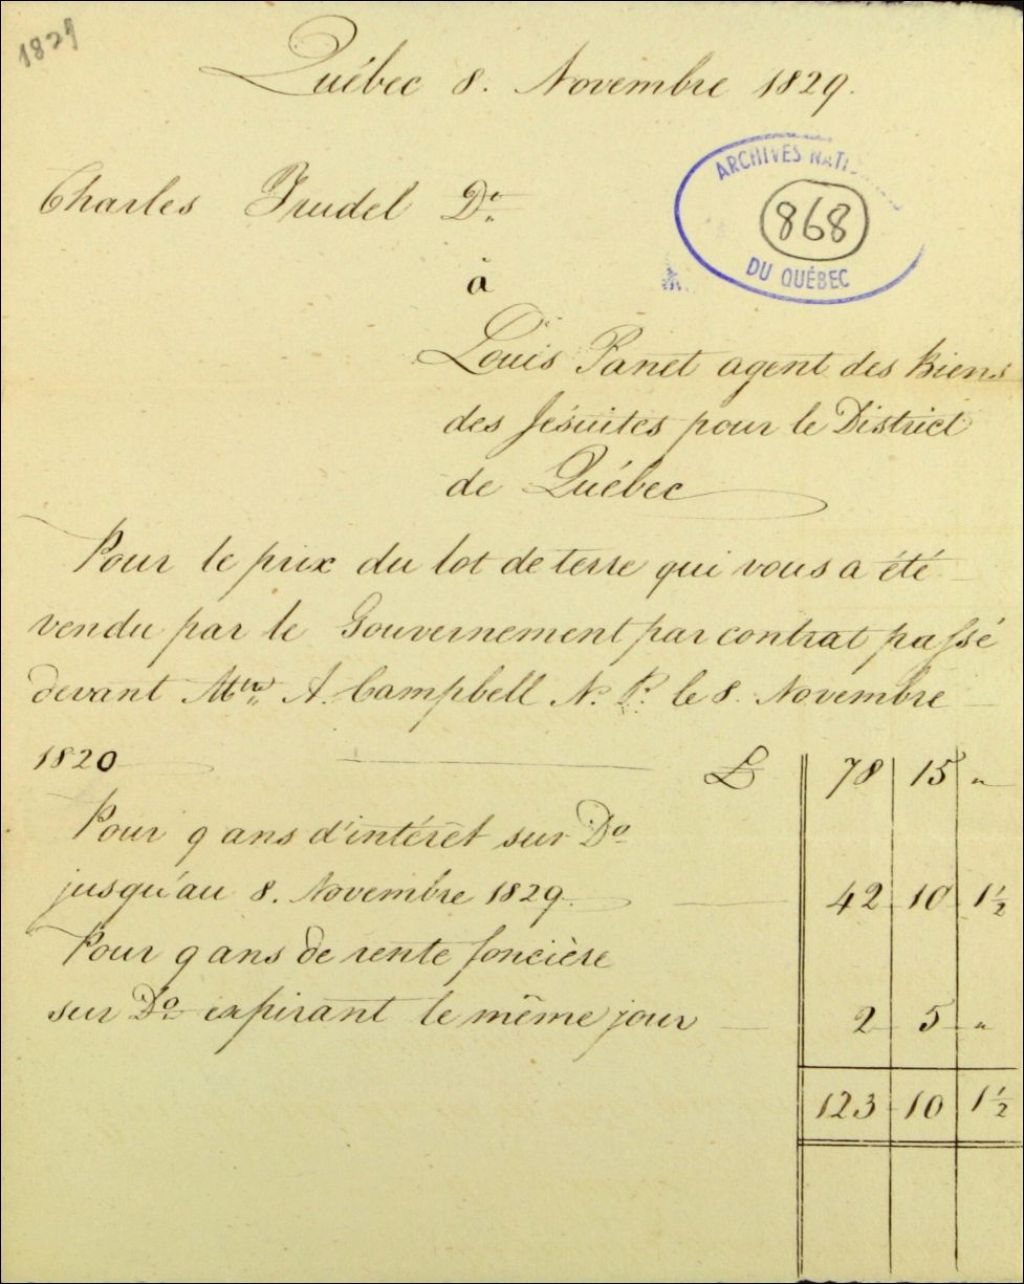 1829
Québec 8. Novembre 1829.
ARCHIVES NATI
868
DU QUÉBEC
Charles Trudel Dr.
à
Louis Panet agent des biens
des Jésuites pour le District
de Québec
Pour le prix du lot de terre qui vous a été
vendu par le Gouvernement par contrat passé
devant Mtre A. Campbell N. P. le 8. Novembre
1820 £ 78 15 "
Pour 9 ans d'intérêt sur Do
jusqu'au 8. Novembre 1829. 42 10 1½
Pour 9 ans de rente foncière
sur Do expirant le même jour 2 5 "
123 10 1½